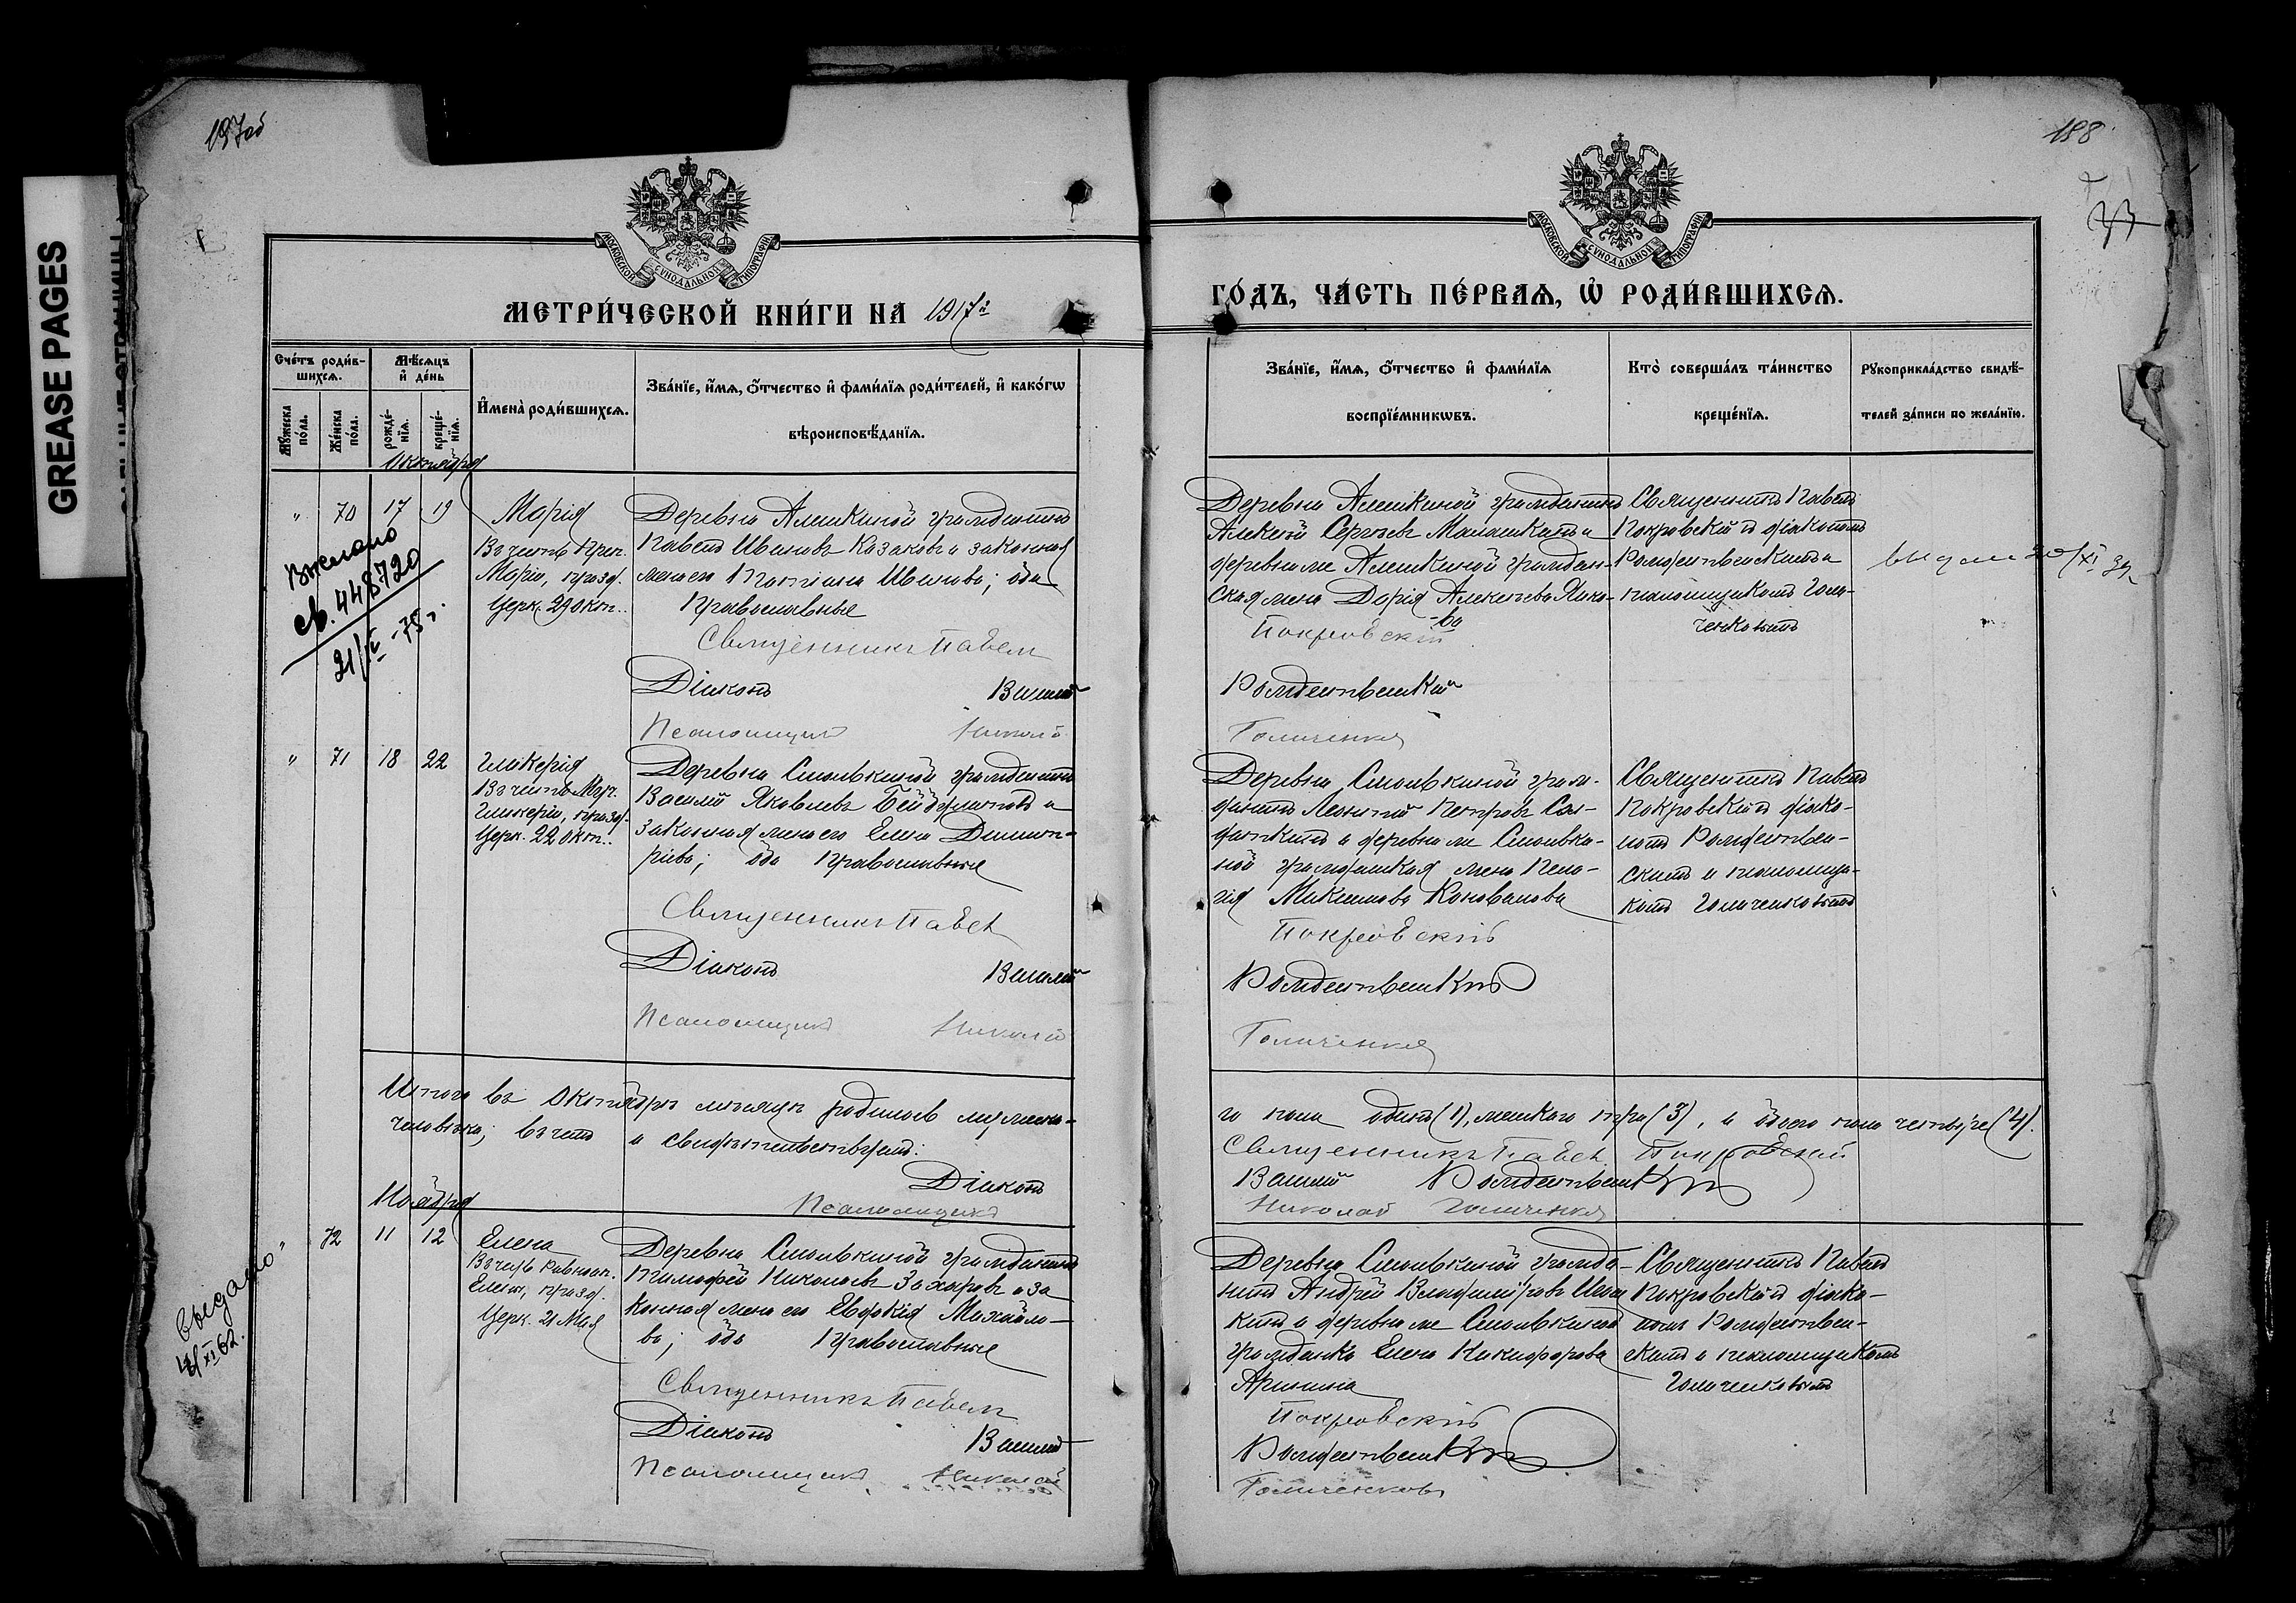 197об
188
GREASE PAGES
МОСКОВСКОЙ СѴНОДАЛЬНОЙ ТИПОГРАФІИ
МОСКОВСКОЙ СѴНОДАЛЬНОЙ ТИПОГРАФІИ
МЕТРИ́ЧЕСКОЙ КНИ́ГИ НА 1917й
ГО́ДЪ, ЧА́СТЬ ПЕ́РВАѦ, Ѽ РОДИ́ВШИХСѦ.
Сче́тъ роди́в-
шихсѧ.
Мѣ́сѧцъ
и҆ де́нь
Мꙋ́жеска
по́ла.
Же́нска
по́ла.
рожде́-
нїѧ.
креще́-
нїѧ.
И҆мена̀ роди́вшихсѧ.
Зва́нїе, и҆́мѧ, ѻ҆́тчество и҆ фами́лїѧ роди́телей, и҆ како́гѡ
вѣроисповѣ́данїѧ.
Зва́нїе, и҆́мѧ, ѻ҆́тчество и҆ фами́лїѧ
воспрїе́мникѡвъ.
Кто̀ соверша́лъ та́инство
креще́нїѧ.
Рꙋкоприкла́дство свидѣ́-
телей за́писи по жела́нїю.
Октября
" 70 17 19
Марія
Въ честь Преп.
Маріи, празд.
Церк. 29 Окт.
Деревни Алешкиной гражданинъ
Павелъ Ивановъ Казаковъ и законная
жена его Татіана Иванова; оба
Православные
Священникъ Павел
Діаконъ Василій
Псаломщикъ Николай
Деревни Алешкиной гражданинъ
Алексѣй Сергѣевъ Малашкинъ и
деревни же Алешкиной граждан-
ская жена Дарія Алексѣева Яко-
-ва
Покровскій
Рождественскій
Голиченков
Священникъ Павелъ
Покровскій съ діакономъ
Рождественскимъ и
псаломщикомъ Голи-
ченковымъ
св. 448720
21/IV-75 г.
" 71 18 22
Гликерія
Въ честь Муч.
Гликеріи, празд.
Церк. 22 Окт.
Деревни Смолькиной гражданинъ
Василій Яковлевъ и
законная жена его Елена Димит-
ріева; оба Православные
Священникъ Павел
Діаконъ Василій
Псаломщикъ Николай
Деревни Смолькиной граж-
данинъ Петровъ
и деревни же Смольки-
ной гражданская жена Пела-
гія Максимова Коновалова
Покровскій
Рождественскій
Голиченков
Священникъ Павелъ
Покровскій съ діако-
номъ Рождествен-
скимъ и псаломщи-
комъ Голиченковымъ
Итого въ Октябрѣ мѣсяцѣ родилось мужеска-
го пола одинъ (1), женскаго три (3), а обоего пола четыре (4)
человѣка; въ чемъ и свидѣтельствуемъ:
Священникъ Павел Покровский
Діаконъ Василій Рождественскій
Псаломщикъ Николай Голиченков
Ноября
" 72 11 12
Елена
Въ честь Равноап.
Елены, празд.
Церк. 21 Мая
Деревни Смолькиной гражданинъ
Тимофей Николаевъ Захаровъ и за-
конная жена его Евдокія Михайло-
ва; оба Православные
Священникъ Павел
Діаконъ Василій
Псаломщикъ Николай
Деревни Смолькиной гражда-
нинъ Андрей Владиміровъ
и деревни же Смолькиной
гражданка Елена Никифорова
Аринина
Покровскій
Рождественскій
Голиченков
Священникъ Павелъ
Покровскій съ діако-
номъ Рождествен-
скимъ и псаломщикомъ
Голиченковымъ
выдано